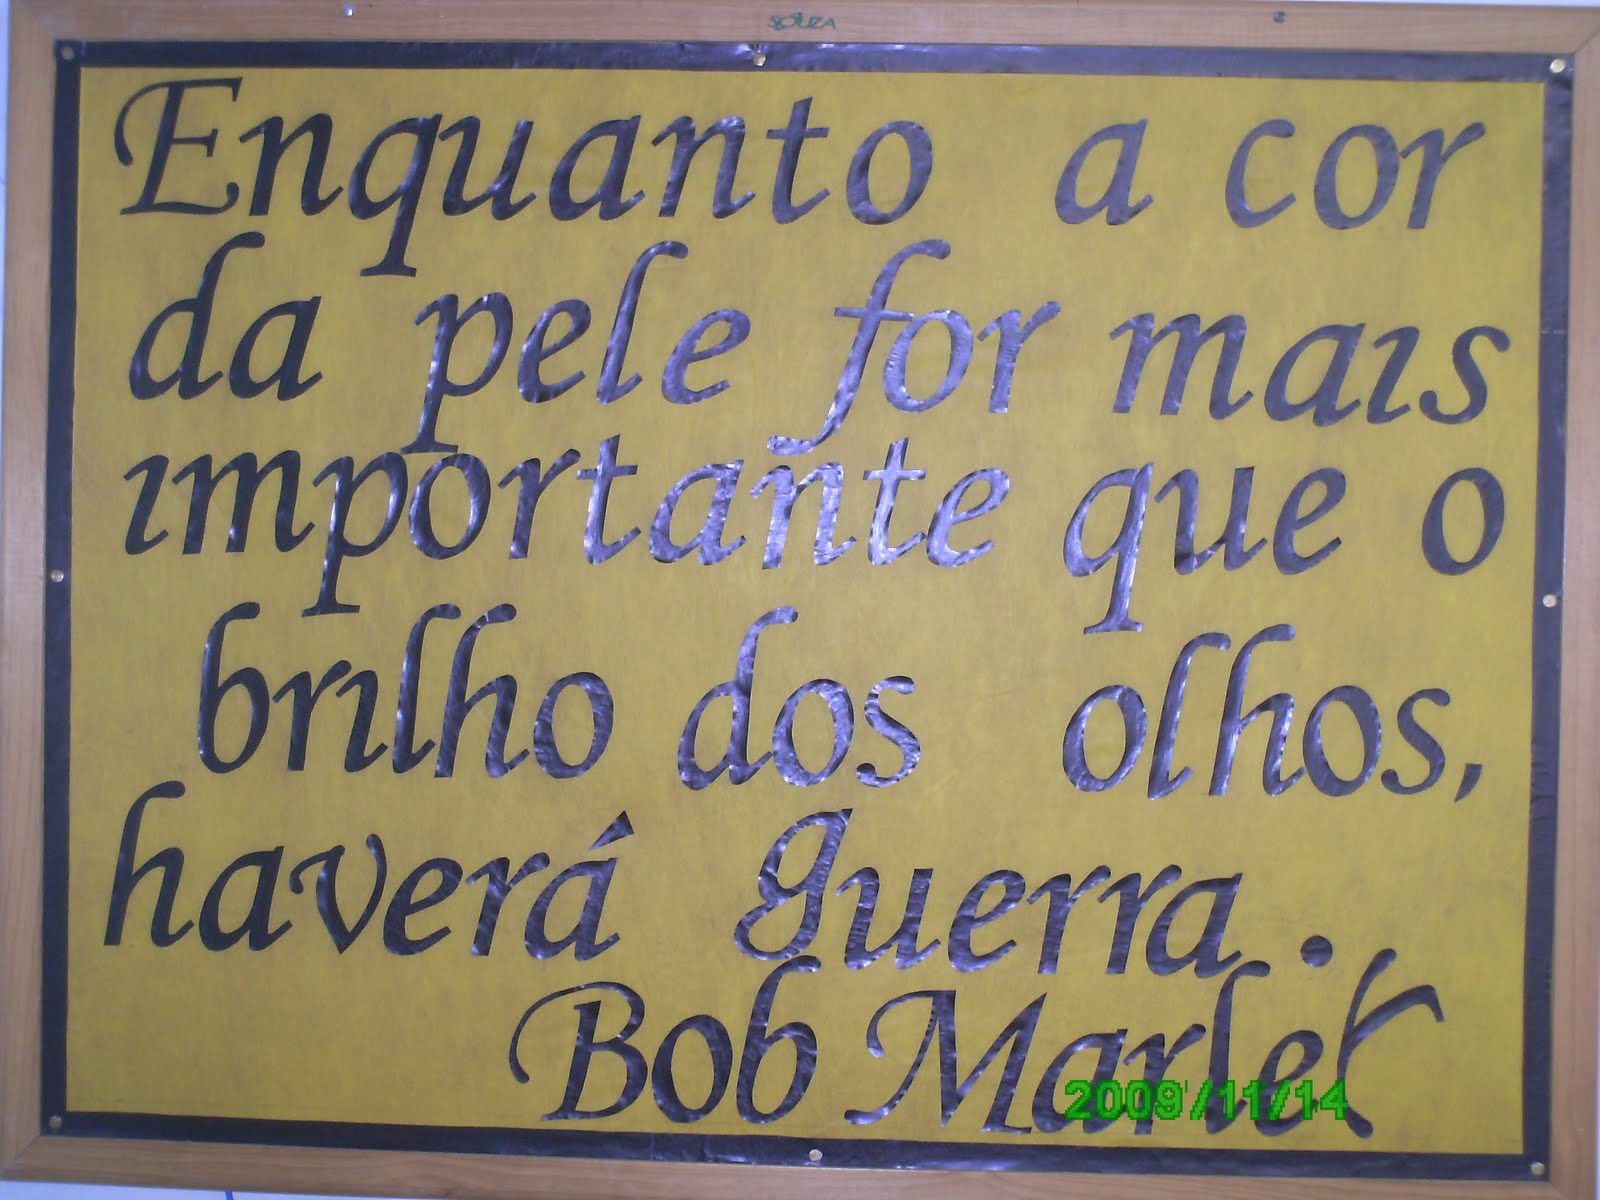 SOUZA
Enquanto a cor
da pele for mais
importante que o
brilho dos olhos,
haverá guerra.
Bob Marley
2009/11/14